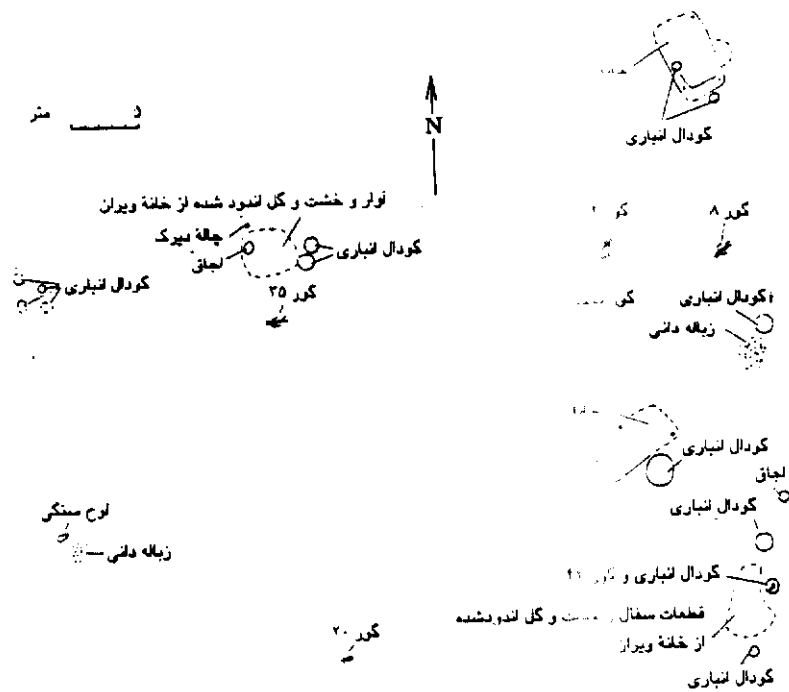 گودال انباری
۵ متر
N
آوار و خشت و گل اندود شده از خانهٔ ویران
چالهٔ دیرک
اجاق
گودال انباری
گودال انباری
گور ۳۵
گور ۸
گودال انباری
زباله دانی
گودال انباری
اجاق
گودال انباری
لوح سنگی
زباله دانی
گودال انباری و گور
قطعات سفال و خشت و گل اندودشده
از خانهٔ ویران
گور ۲۰
گودال انباری